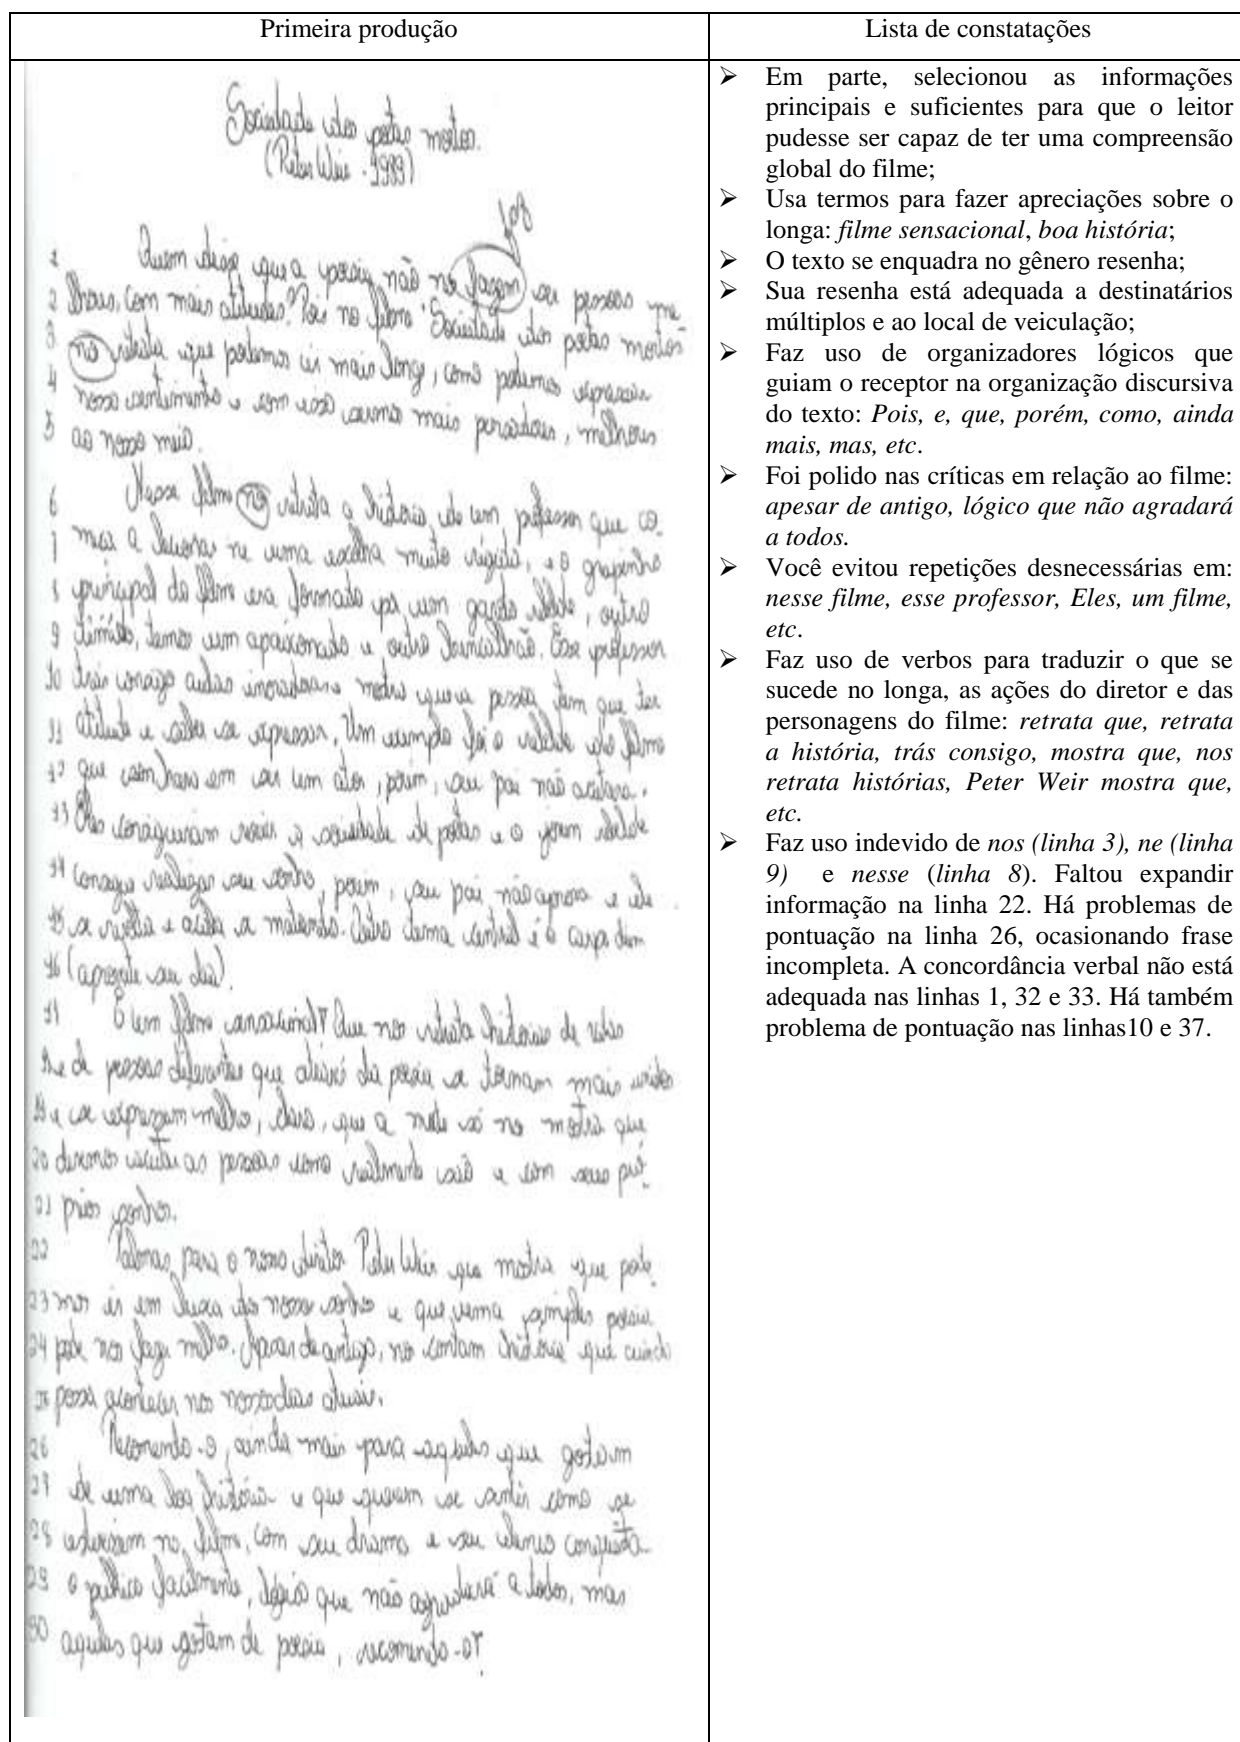 Primeira produção
Lista de constatações
Sociedade dos poetas mortos.
(Peter Weir - 1989)
faz
1 Quem disse que a poesia não nos fazem ser pessoas me-
2 lhores, com mais atitudes? Pois no filme "Sociedade dos poetas mortos"
3 nos retrata que podemos ir mais longe, como podemos expressar
4 nosso sentimento e com isso sermos mais pensadores, melhores
5 ao nosso meio.
6 Nesse filme nos retrata a história de um professor que co-
7 meça a lecionar ne uma escolha muito rígida, e o grupinho
8 principal do filme era formado por um garoto rebelde, outro
9 tímido, temos um apaixonado e outro brincalhão. Esse professor
10 trás consigo aulas inovadoras mostra que a pessoa tem que ter
11 atitude e saber se expressar, Um exemplo foi o rebelde do filme
12 que sonhava em ser um ator, porém, seu pai não aceitava.
13 Eles conseguiram reviver a sociedade de poetas e o jovem rebelde
14 consegue realizar seu sonho, porém, seu pai não aprova e ele
15 se revolta e acaba se matando. Outro tema central é o carpe diem
16 (aproveite seu dia).
17 É um filme sensacional! Que nos retrata histórias de
18 e de pessoas diferentes que através da poesia se tornam mais unidos
19 e se expressam melhor, claro, que a morte só nos mostra que
20 devemos aceitar as pessoas como realmente são e com seus pró-
21 prios sonhos.
22 Palmas para o nosso diretor Peter Weir que mostra que pode-
23 mos ir em busca do nosso sonho e que uma simples poesia
24 pode nos fazer melhor. Apesar de antigo, nos contam história que ainda
25 possa acontecer nos nossos dias atuais.
26 Recomendo-o, ainda mais para aqueles que gostam
27 de uma boa história e que querem se sentir como se
28 estivessem no filme, com seu drama e seu elenco conquista
29 o público facilmente, lógico que não agradará a todos, mas
30 aqueles que gostam de poesia, recomendo-o!
➢ Em parte, selecionou as informações
principais e suficientes para que o leitor
pudesse ser capaz de ter uma compreensão
global do filme;
➢ Usa termos para fazer apreciações sobre o
longa: filme sensacional, boa história;
➢ O texto se enquadra no gênero resenha;
➢ Sua resenha está adequada a destinatários
múltiplos e ao local de veiculação;
➢ Faz uso de organizadores lógicos que
guiam o receptor na organização discursiva
do texto: Pois, e, que, porém, como, ainda
mais, mas, etc.
➢ Foi polido nas críticas em relação ao filme:
apesar de antigo, lógico que não agradará
a todos.
➢ Você evitou repetições desnecessárias em:
nesse filme, esse professor, Eles, um filme,
etc.
➢ Faz uso de verbos para traduzir o que se
sucede no longa, as ações do diretor e das
personagens do filme: retrata que, retrata
a história, trás consigo, mostra que, nos
retrata histórias, Peter Weir mostra que,
etc.
➢ Faz uso indevido de nos (linha 3), ne (linha
9) e nesse (linha 8). Faltou expandir
informação na linha 22. Há problemas de
pontuação na linha 26, ocasionando frase
incompleta. A concordância verbal não está
adequada nas linhas 1, 32 e 33. Há também
problema de pontuação nas linhas10 e 37.